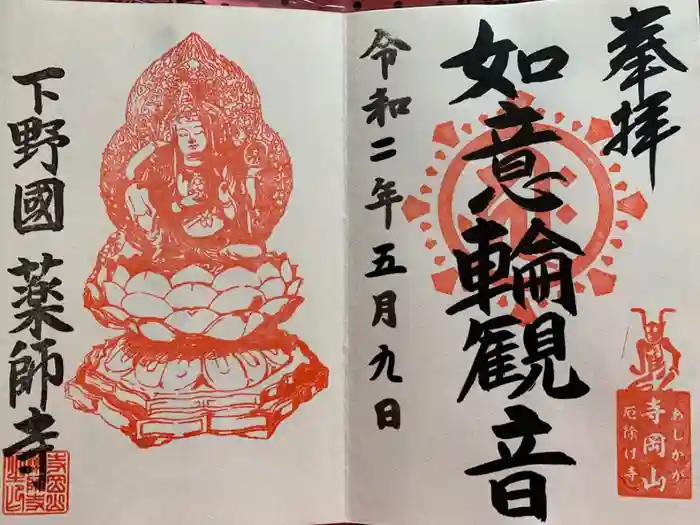 奉拝
如意輪観音
令和二年五月九日
あしかが
寺岡山
厄除け寺
下野國 薬師寺